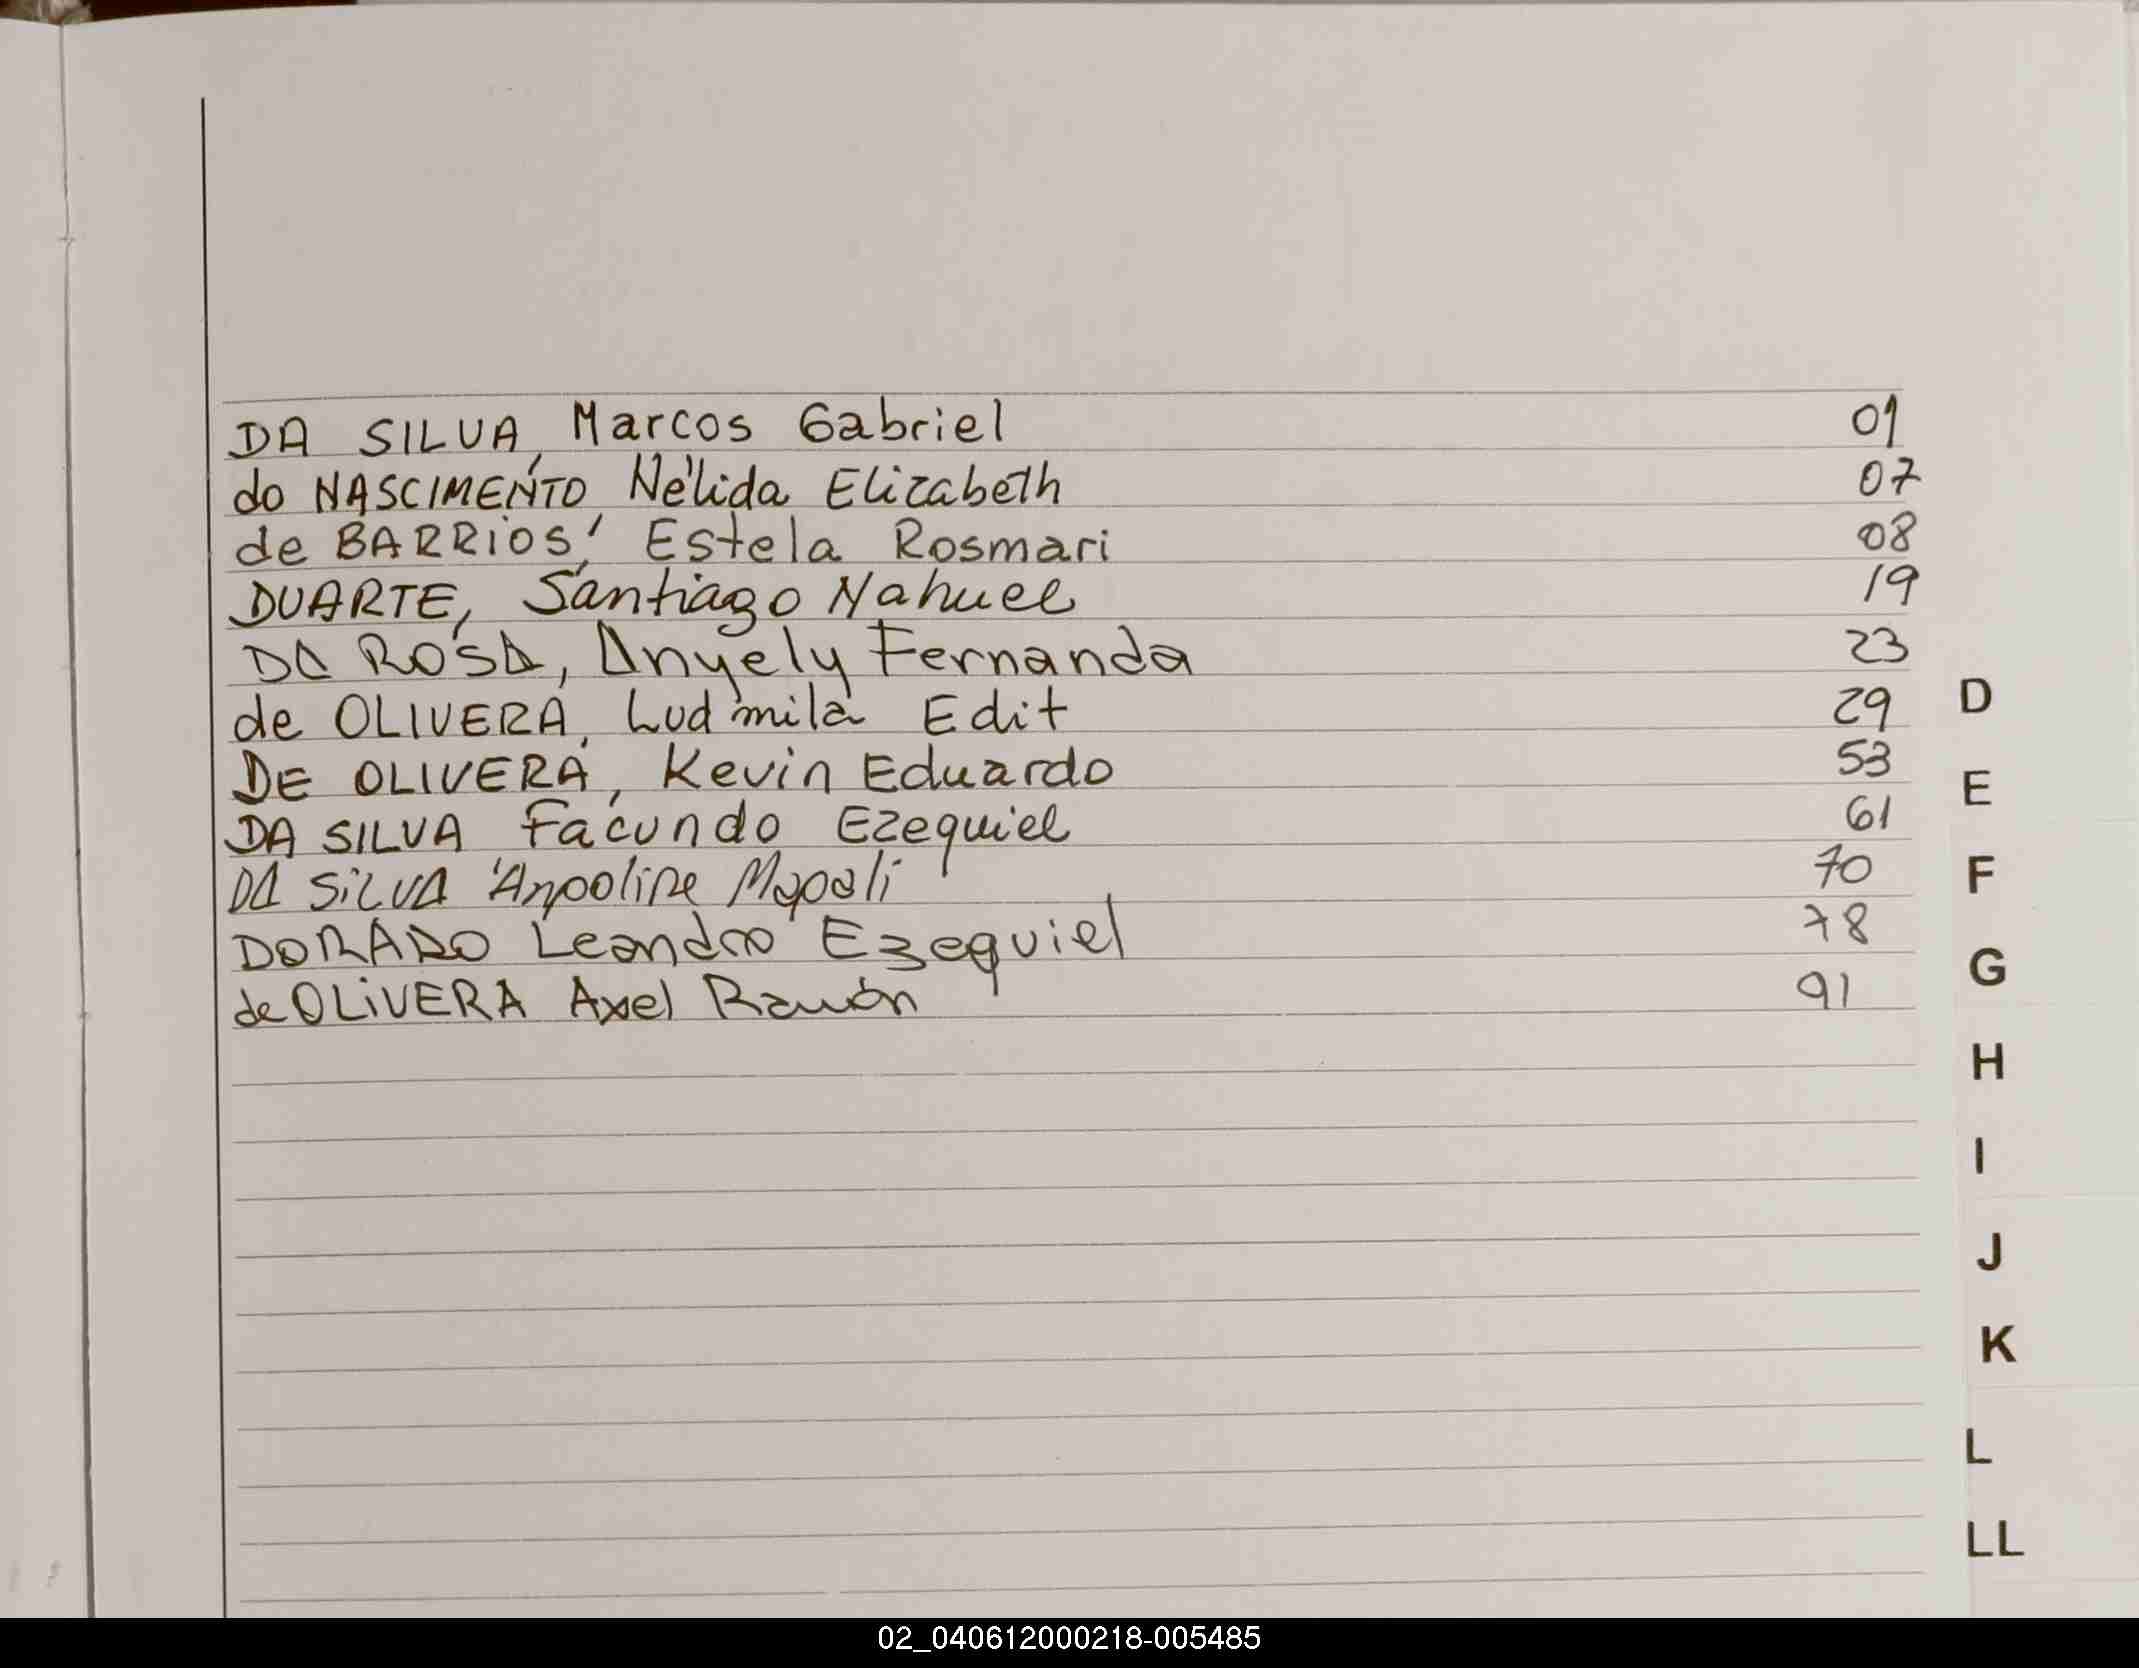 DA SILVA, Marcos Gabriel 01
do NASCIMENTO, Nélida Elizabeth 07
de BARRIOS, Estela Rosmari 08
DUARTE, Santiago Nahuel 19
DA ROSA, Anyely Fernanda 23
de OLIVERA, Ludmila Edit 29
DE OLIVERA, Kevin Eduardo 53
DA SILVA Facundo Ezequiel 61
DA SILVA 70
DORADO Leandro Ezequiel 78
de OLIVERA Axel Ramón 91
D
E
F
G
H
I
J
K
L
LL
02_040612000218-005485